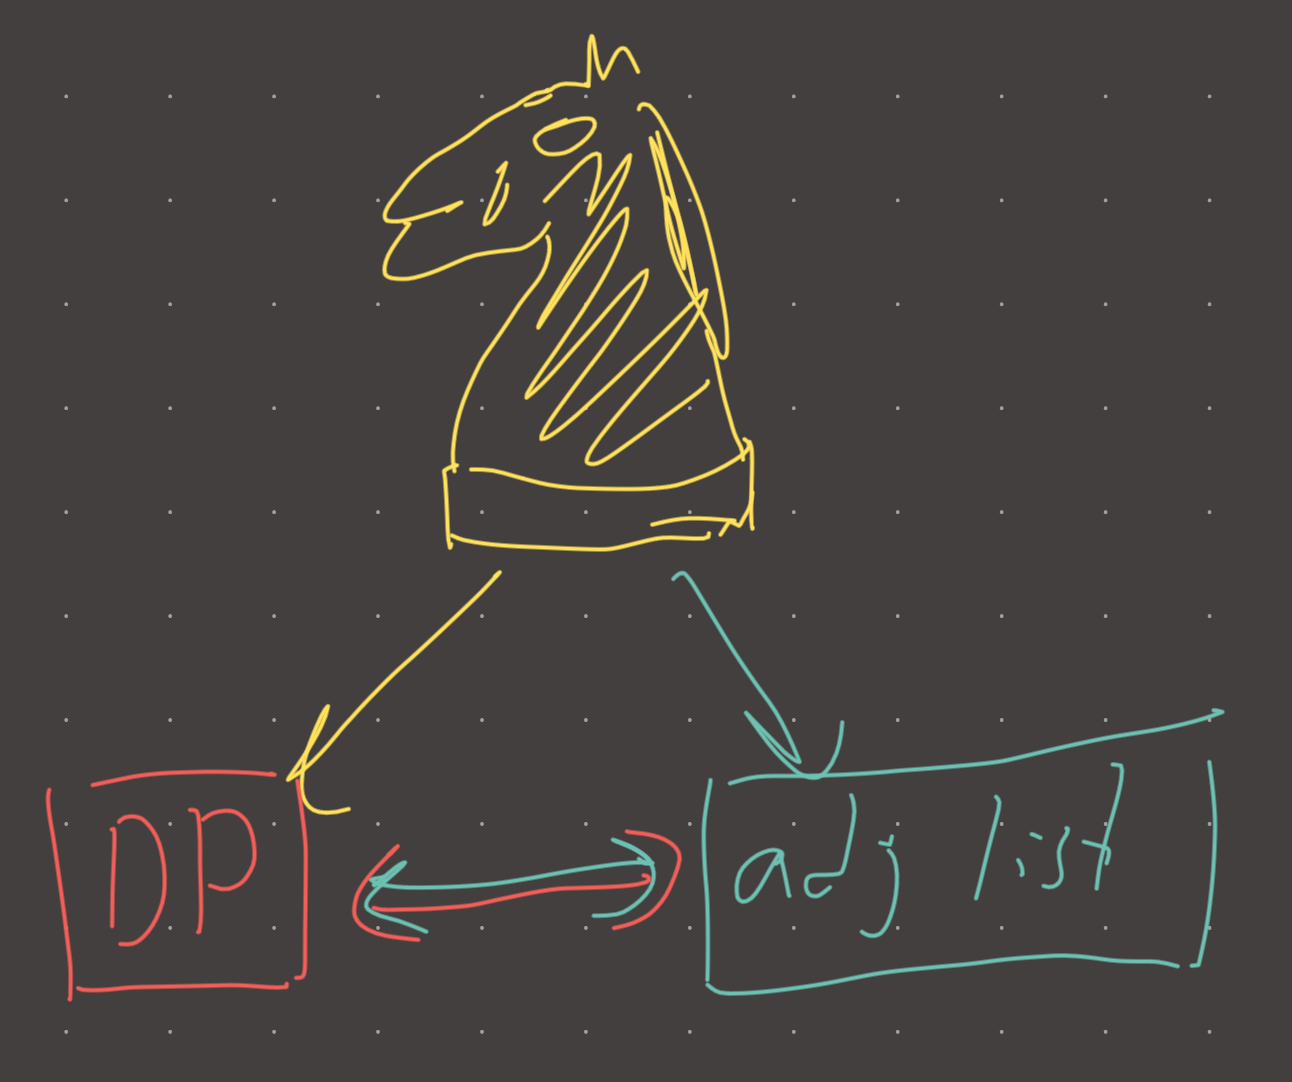 DP
adj list